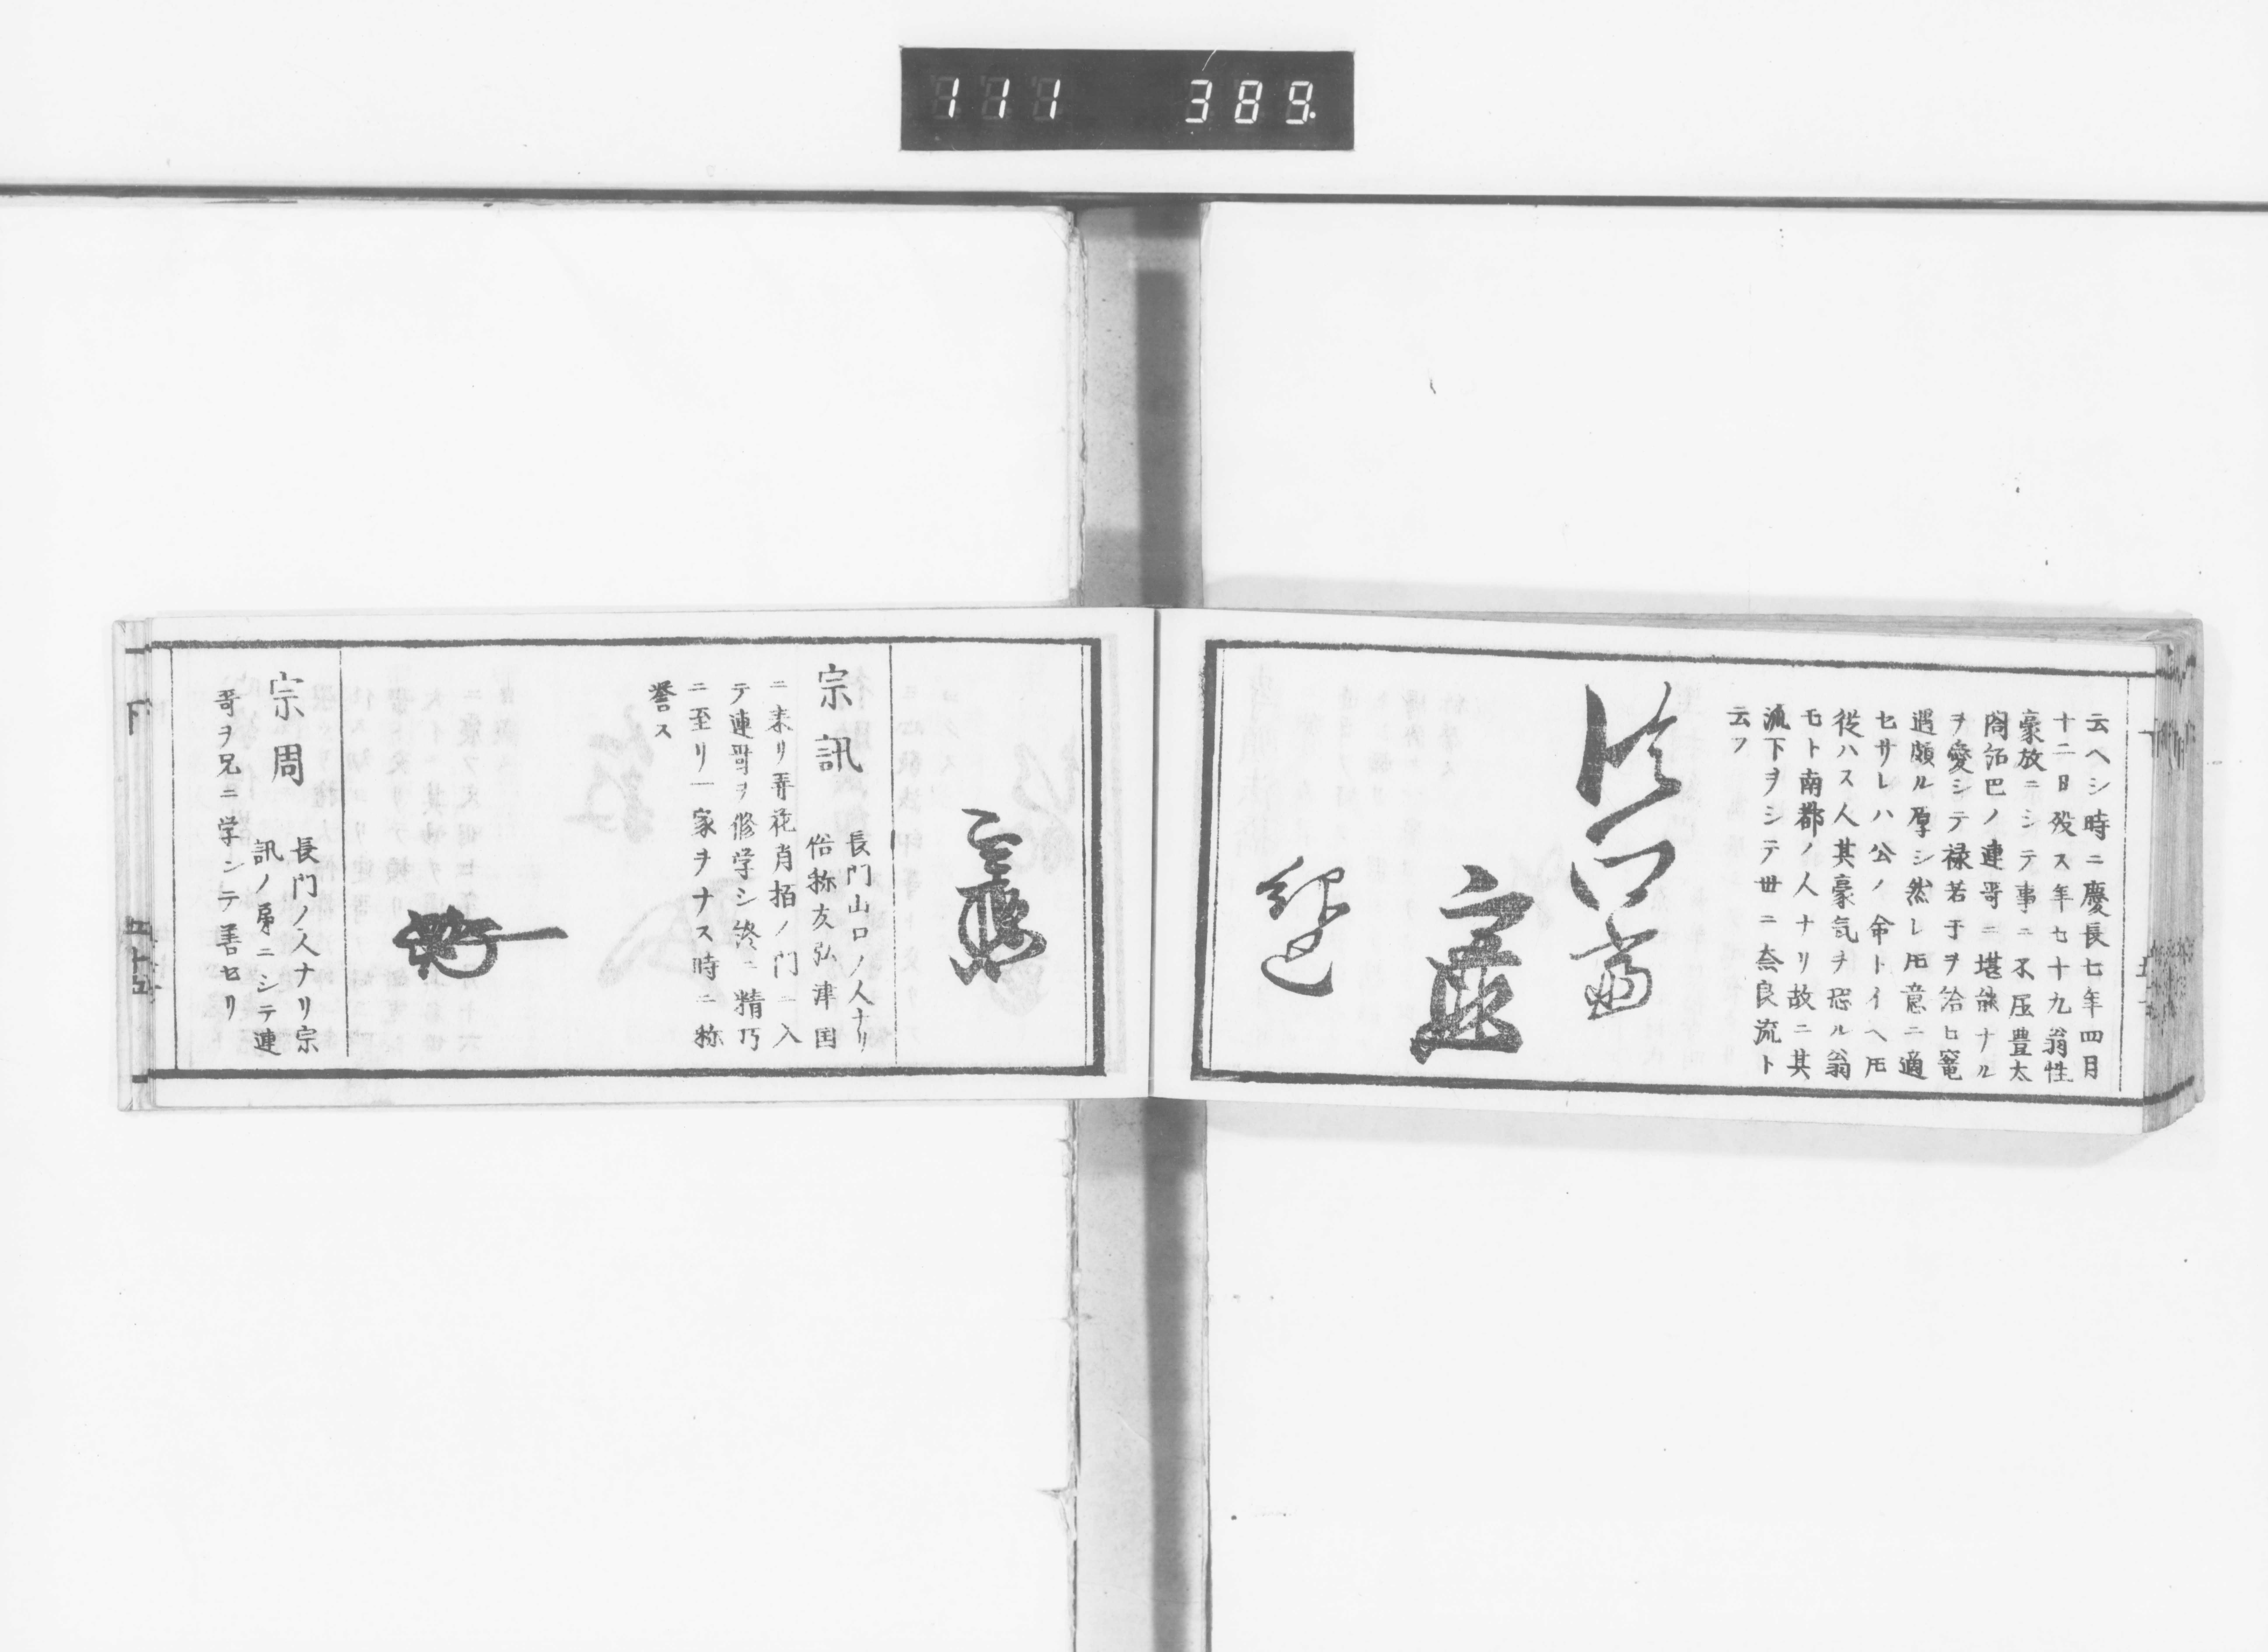 111 389
云ヘシ時ニ慶長七年四月
十二日歿ス年七十九翁性
豪放ニシテ事ニ不圧豊太
閤紹巴ノ連哥ニ堪能ナル
ヲ愛シテ禄若干ヲ給ヒ寵
遇頗ル厚シ然レ𪜈意ニ適
セサレハ公ノ命トイヘ𪜈
従ハス人其豪気ヲ恐ル翁
モト南都ノ人ナリ故ニ其
流下ヲシテ世ニ奈良流ト
云フ
紹巴
宗訊
長門山口ノ人ナリ
俗称友弘津国
ニ来リ弄花肖栢ノ門ニ入
テ連哥ヲ修学シ終ニ精巧
ニ至リ一家ヲナス時ニ称
誉ス
宗周
長門ノ人ナリ宗
訊ノ弟ニシテ連
哥ヲ兄ニ学ンテ善セリ
下
五十五